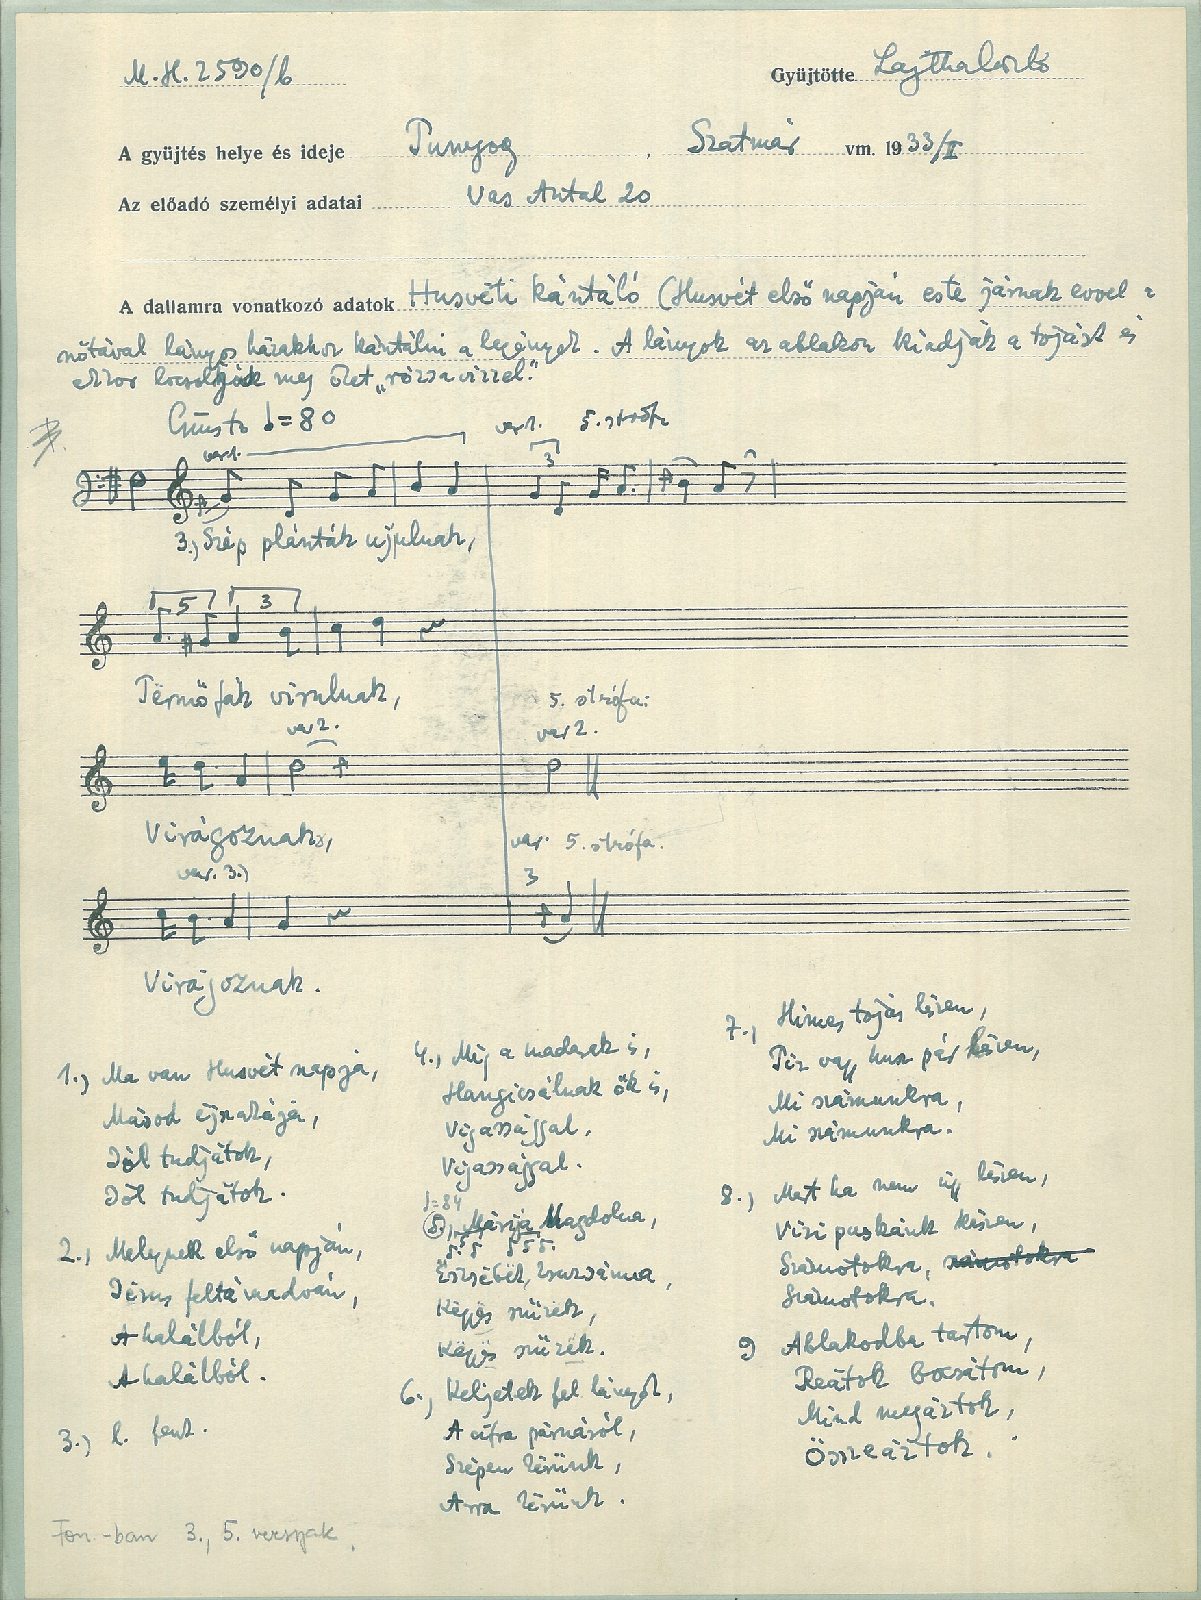 M.H. 2590/b
Gyüjtötte Lajtha László
A gyüjtés helye és ideje Tunyog, Szatmár vm. 1933/II
Az előadó személyi adatai Vas Antal 20
A dallamra vonatkozó adatok Husvéti kántáló (Husvét első napján este járnak evvel a
nótával lányos házakhoz kántálni a legények. A lányok az ablakon kiadják a tojást és
ekkor locsolják meg őket „rózsavizzel."
Giusto = 80
var 1. 5. strófa
var 1.
3
3.) Szép plánták ujulnak,
5 3
Termőfák virulnak,
5. strófa:
var 2.
var 2.
Virágoznak,
var. 5. strófa.
var. 3.)
3
Virágoznak.
1.) Ma van Husvét napja,
Másod éjszakája,
Jól tudjátok,
Jól tudjátok.
2.) Melynek első napján,
Jézus feltámadván,
A halálból,
A halálból.
3.) l. fent.
4.) Mig a madarak is,
Hangicsálnak ők is,
Vigassággal,
Vigassággal.
=84
5.) Márija Magdolna,
Örzsébet, Zsuzsánna,
Képpës szüzek,
Képpës szüzek.
6.) Keljetek fel lányok,
A cifra párnáról,
Szépen kérünk,
Arra kérünk.
7.) Himes tojás lëszen,
Tiz vagy husz pár lëszen,
Mi számunkra,
Mi számunkra.
8.) Mert ha nem ugy lëszen,
Vizi puskánk készen,
Számotokra, számotokra
Számotokra.
9 Ablakodba tartom,
Reátok bocsátom,
Mind megáztok,
Összeáztok.
Fon.-ban 3., 5. versszak.